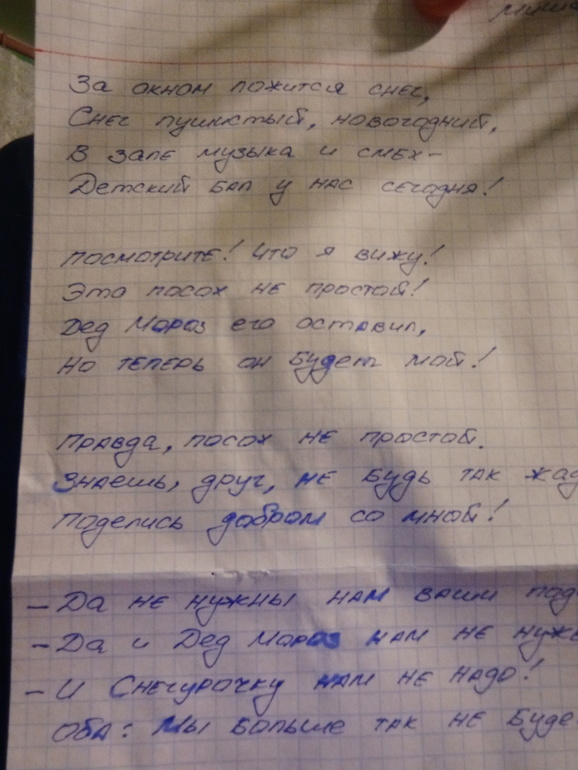 За окном ложится снег,
Снег пушистый, новогодний,
В зале музыка и смех-
Детский бал у нас сегодня!
Посмотрите! Что я вижу!
Это посох не простой!
Дед Мороз его оставил,
Но теперь он будет мой!
Правда, посох не простой.
Знаешь, друг, не будь так жад
Поделись добром со мной!
- Да не нужны нам ваши под
- Да и Дед Мороз нам не нуж
- И Снегурочку нам не надо!
Оба: Мы больше так не буде